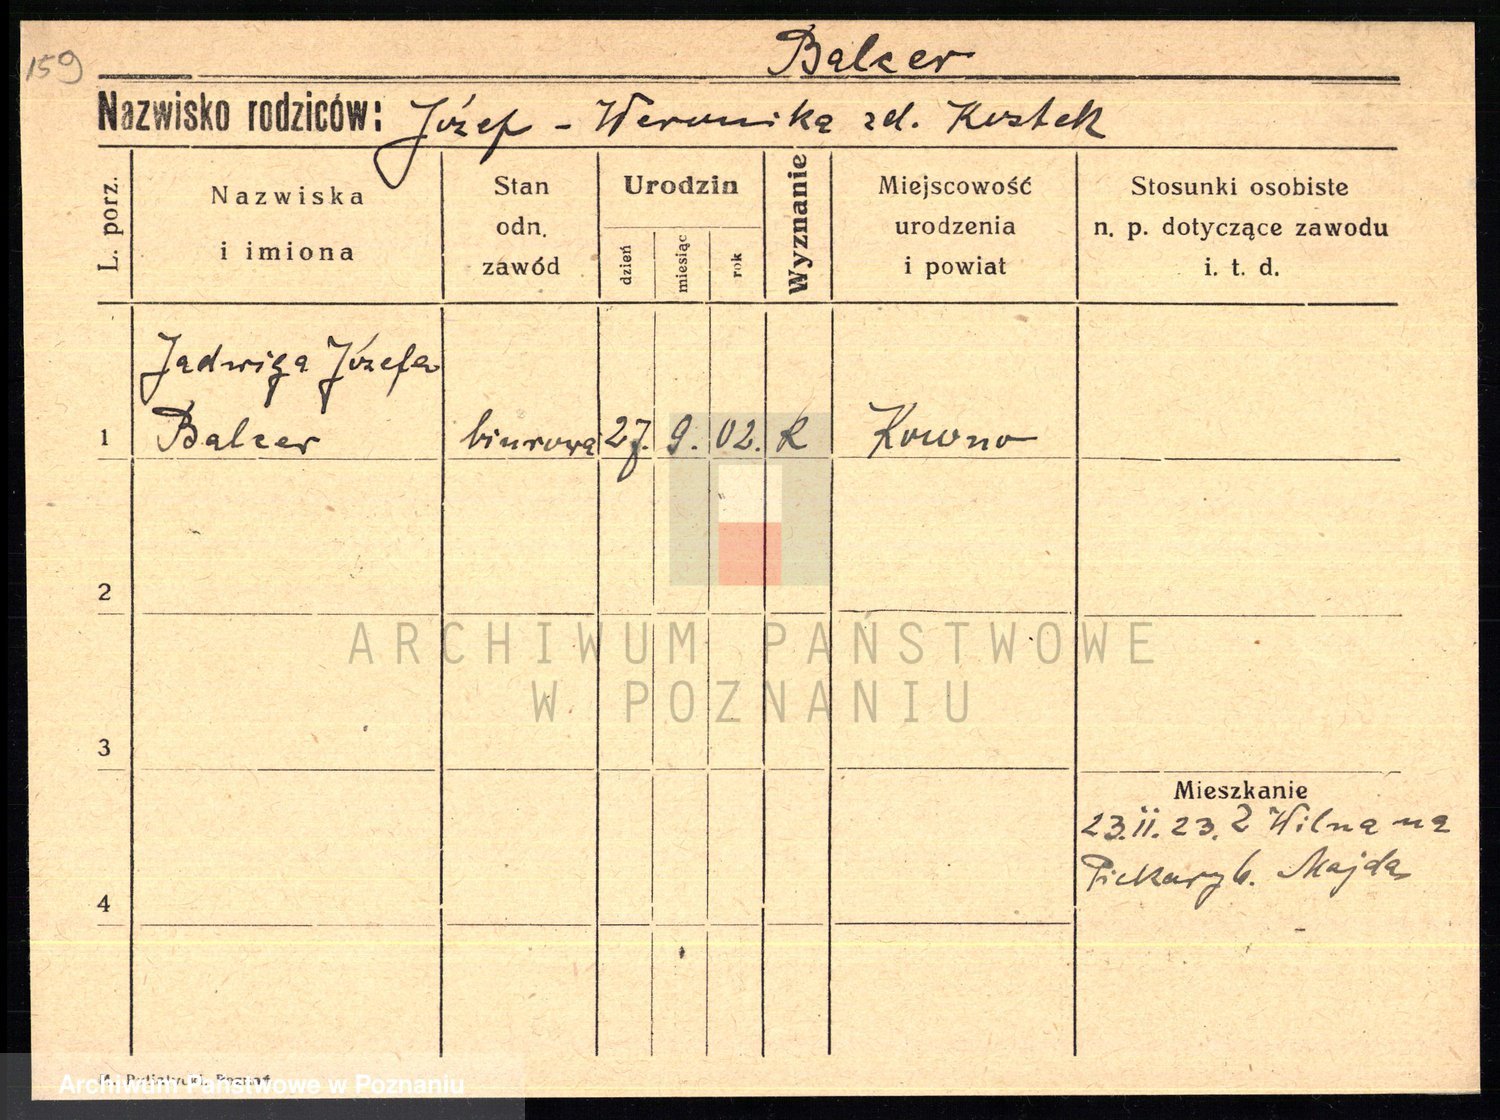 159
Balcer
Nazwisko rodziców: Józef - Weronika zd. Kostek
L. porz.
Nazwiska
i imiona
Stan
odn.
zawód
Urodzin
dzień
miesiąc
rok
Wyznanie
Miejscowość
urodzenia
i powiat
Stosunki osobiste
n. p. dotyczące zawodu
i. t. d.
Jadwiga Józefa
1 Balcer biurowa 27. 9. 02. R Kowno
2
ARCHIWUM PAŃSTWOWE
W POZNANIU
3
Mieszkanie
23.II.23. Z Wilna na
Piekary 6. Majda
4
Archiwum Państwowe w Poznaniu